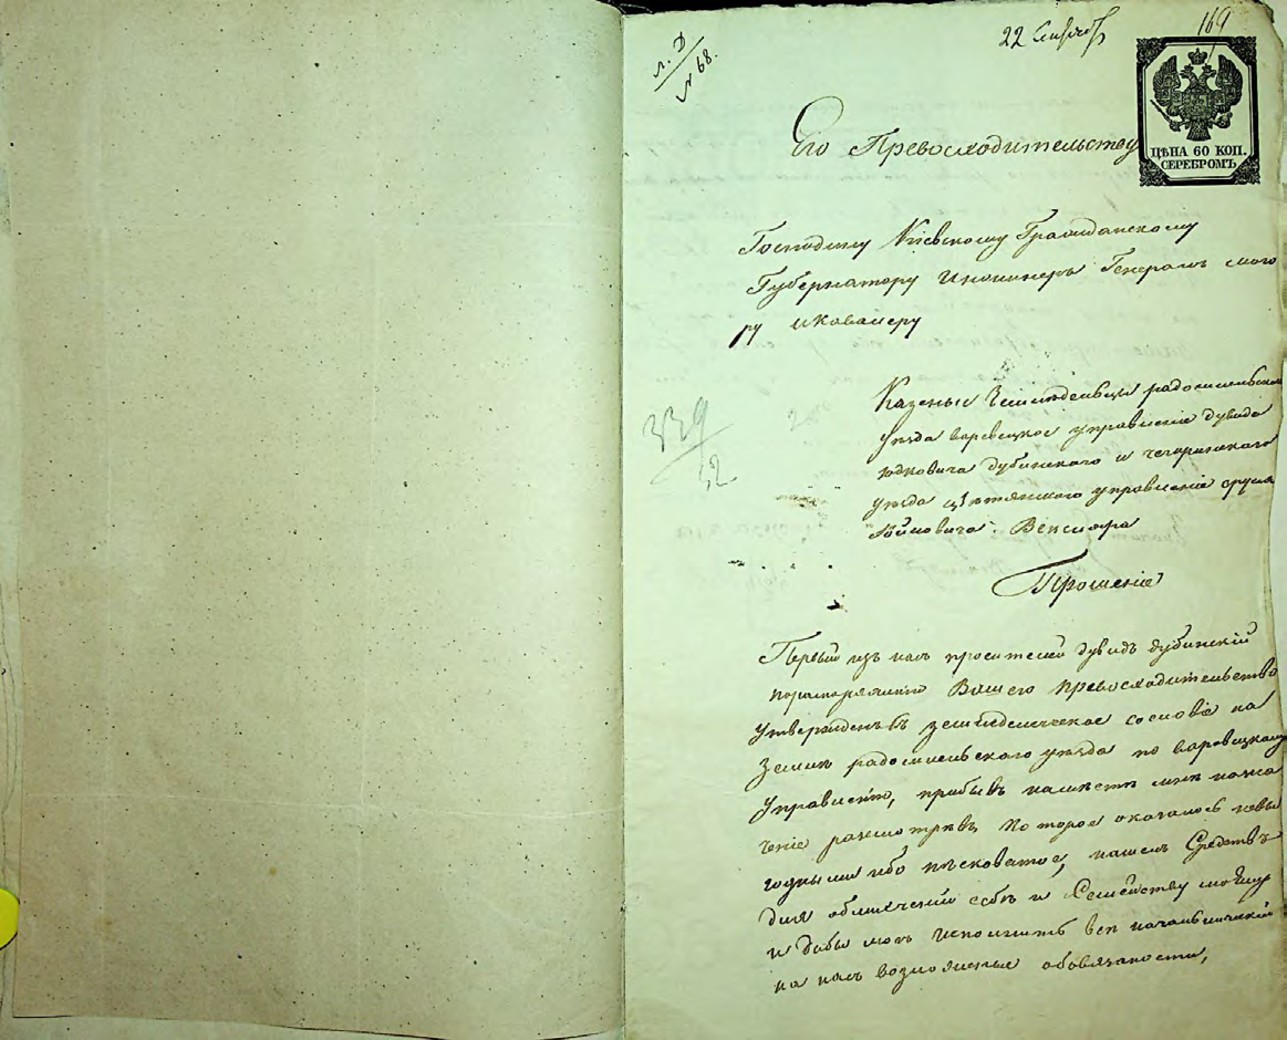 л. Д
№ 68.
22 Сентяб
169
ЦѢНА 60 КОП.
СЕРЕБРОМЪ.
Его Превосходительству
Господину Кіевскому Гражданскому
Губернатору Инженеръ Генералъ маіо
ру и Кавалеру
339
52
Казеные Земледельцы радомысльскаго
уезда варовецкое управленіе дувида
юдковича дубинскаго и чегиринскаго
уезда управленіе сруля
Векслера
Прошеніе
Первый изъ насъ просителей дувидъ дубинскій
Вашего превосходительства
утвержденъ въ земледелческое сословіе на
земли радомысльского уезда по варовецкому
управленію, прибывъ на место мне назна
ченіе разсмотревъ которое оказалось невы
годнымъ ибо песковатое, нашелъ Средствъ
для облегченій себе и Семейству моему
и дабы могъ исполнить все начальническій
на насъ возложеные обовязаности,